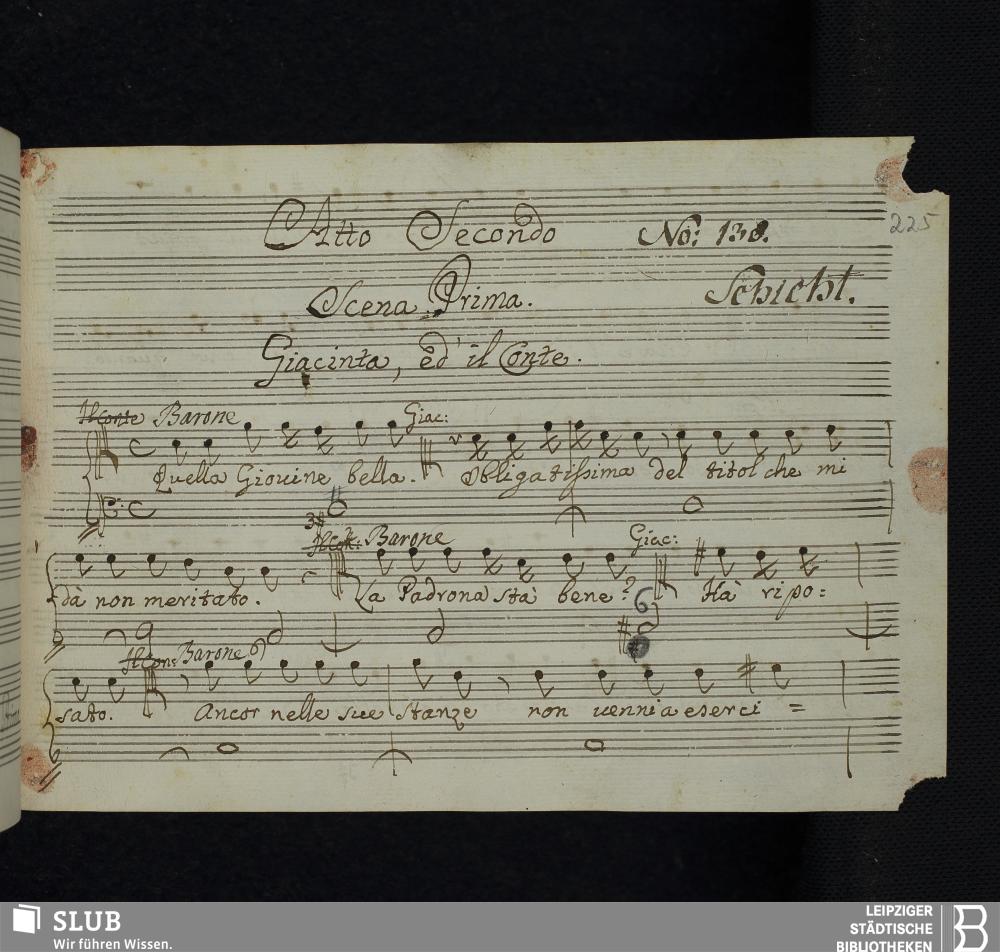 Atto Secondo No: 138.
225
Scena Prima. Schicht.
Giacinta, ed' il Conte.
Il Conte Barone Giac:
Quella Giovine bella. Obligatissima del titol che mi
3#
Il Con: Barone Giac:
dà non meritato. La Padrona stà bene? Hà ripo:
6
Il Con: Barone
sato. Ancor nelle sue stanze non venni a eserci =
SLUB
Wir führen Wissen.
LEIPZIGER
STÄDTISCHE
BIBLIOTHEKEN